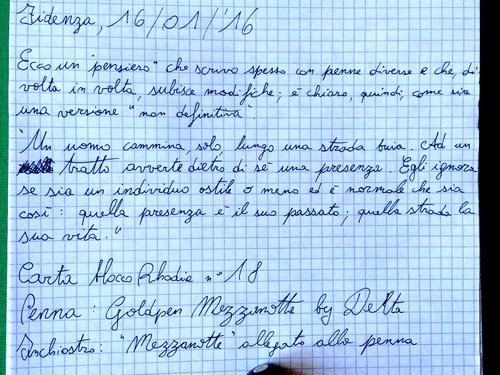 Fidenza, 16/01/'16
Ecco un "pensiero" che scrivo spesso con penne diverse e che, di
volta in volta, subisce modifiche; è chiaro, quindi, come sia
una versione "non definitiva".
"Un uomo cammina, solo, lungo una strada buia. Ad un
tratto avverte dietro di sé una presenza. Egli ignora
se sia un individuo ostile o meno ed è normale che sia
così: quella presenza è il suo passato; quella strada la
sua vita."
Carta Blocco Rhodia n° 18
Penna: Goldpen Mezzanotte by Delta
Inchiostro: "Mezzanotte" allegato alla penna